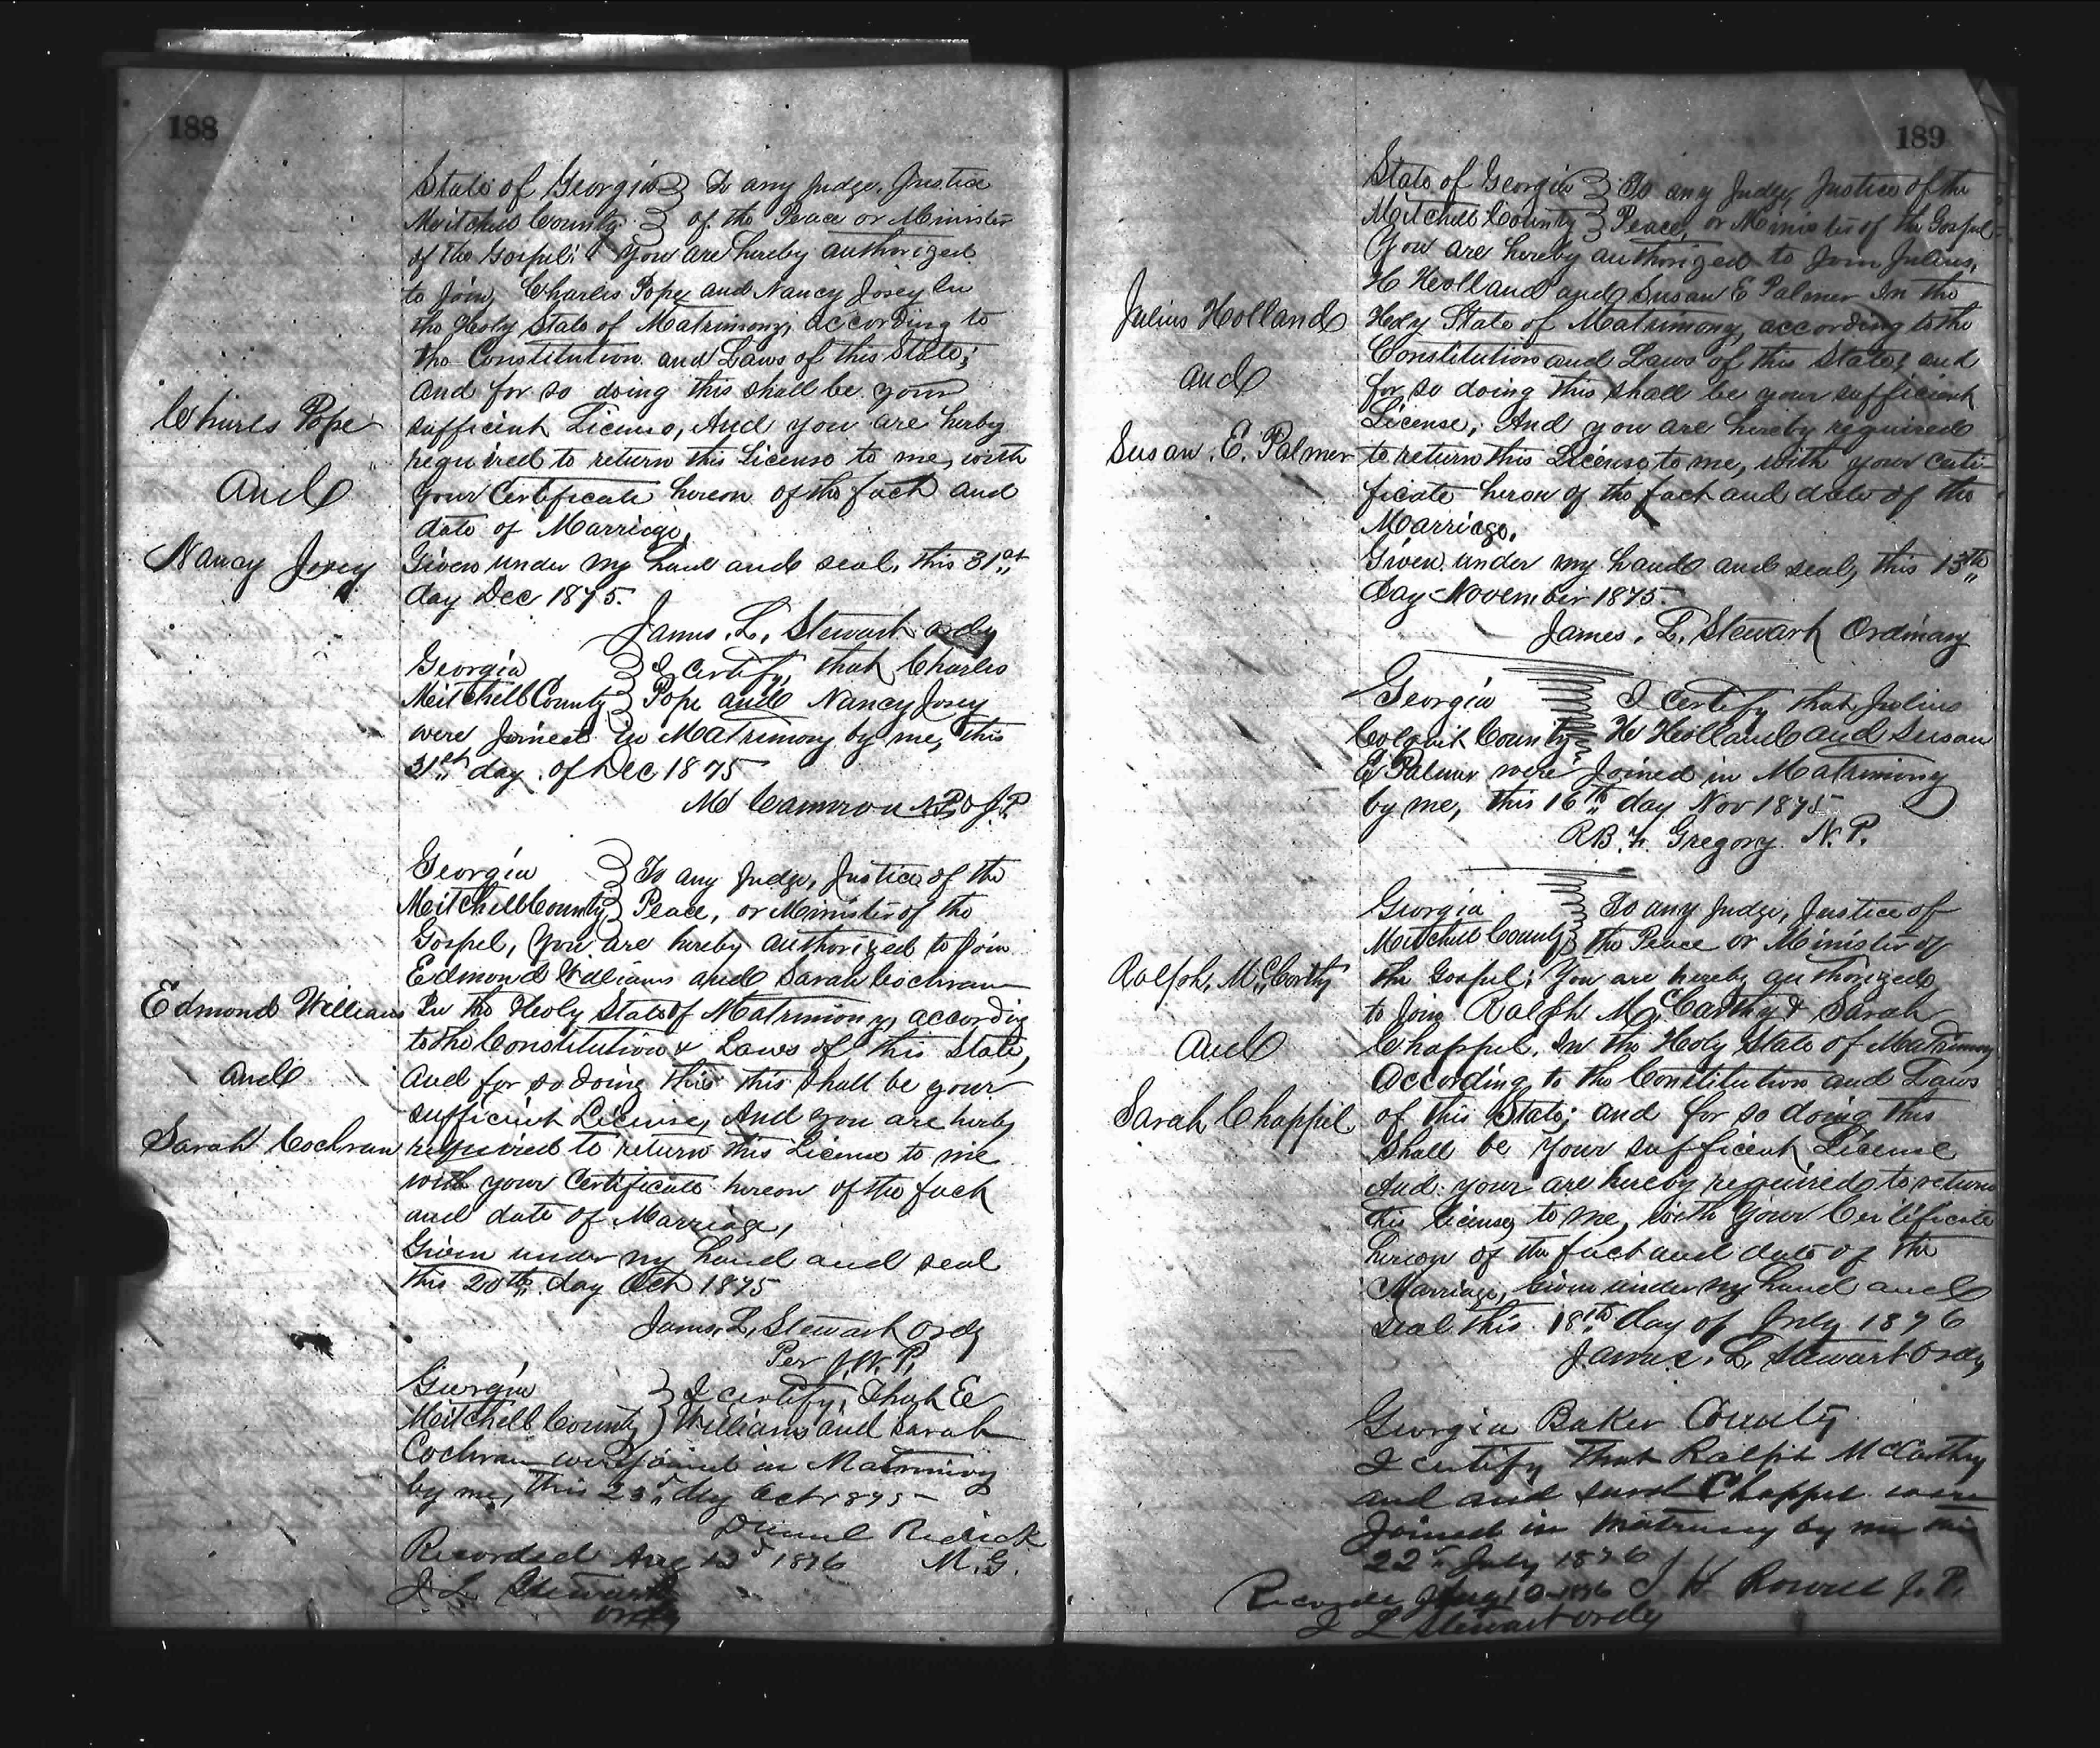 188
State of Georgia } To any Judge, Justice
Mitchell County } of the Peace or Minister
of the Gospel: You are hereby authorized
to Join, Charles Pope and Nancy Josey In
the Holy State of Matrimony, according to
the Constitution and Laws of this State;
and for so doing this shall be your
Charles Pope
sufficient License, And you are herby
required to return this License to me, with
and
your Certificate hereon of the fact and
date of Marriage,
Nancy Josey
Given under my hand and seal, this 31st
day Dec 1875.
James. L. Stewart ordy
Georgia } I certify, that Charles
Mitchell County } Pope and Nancy Josey
were Joined in Matrimony by me, this
31st day of Dec 1875
Mc Camron N.P. & J.P.
Georgia } To any Judge, Justice of the
Mitchell County } Peace, or Minister of the
Gospel, You are hereby authorized to Join
Edmond Williams and Sarah Cochran
Edmond Williams
In the Holy State of Matrimony, according
to the Constitution & Laws of this State,
and
and for so doing this this shall be your
sufficient License, And you are herby
Sarah Cochran
required to return this License to me
with your Certificate hereon of the fact
and date of Marriage,
Given under my hand and seal
this 20th day Oct 1875
James, L, Stewart Ordy
Per J.W.P.
Georgia } I certify, that E
Mitchell County } Williams and Sarah
Cochran were joined in Matrimony
by me, this 23d day Oct 1875
Daniel Redick
Recorded Aug 12d 1876 M.G.
J L Stewart
ordy
189
State of Georgia } To any Judge, Justice of the
Mitchell County } Peace, or Minister of the Gospel:
You are hereby authorized to Join Julius,
H Holland and Susan E Palmer In the
Julius Holland
Holy State of Matrimony, according to the
Constitution and Laws of this State; and
and
for so doing this shall be your sufficient
License; And you are hereby required
Susan. E. Palmer
to return this License to me, with your certi-
ficate heron of the fact and date of the
Marriage.
Given under my hand and seal, this 13th
Day November 1875.
James. L. Stewart Ordinary
Georgia } I certify that Julius
Colquit County } H Holland and Susan
E Palmer were Joined in Matrimony
by me, this 16th day Nov 1875
R.B. Gregory N.P.
Georgia } To any Judge, Justice of
Mitchell County } the Peace or Minister of
Ralph, McCarthy
the Gospel; You are hereby authorized
to Join Ralph McCarthy & Sarah
and
Chappel, In the Holy State of Matrimony
According to the Constitution and Laws
Sarah Chappel
of this State; and for so doing this
Shall be your sufficient License
And your are hereby required to return
this License, to me, with your Certificate
hereon of the fact and date of the
Marriage, Given under my hand and
seal this 18th day of July 1876
James. L. Stewart Ordy
Georgia Baker County
I certify that Ralph McCarthy
and and Sarah Chappel were
Joined in Matrimony by me this
22d July 1876 J H Rowell J.P.
Recorded Aug 10 1876
J L Stewart ordy